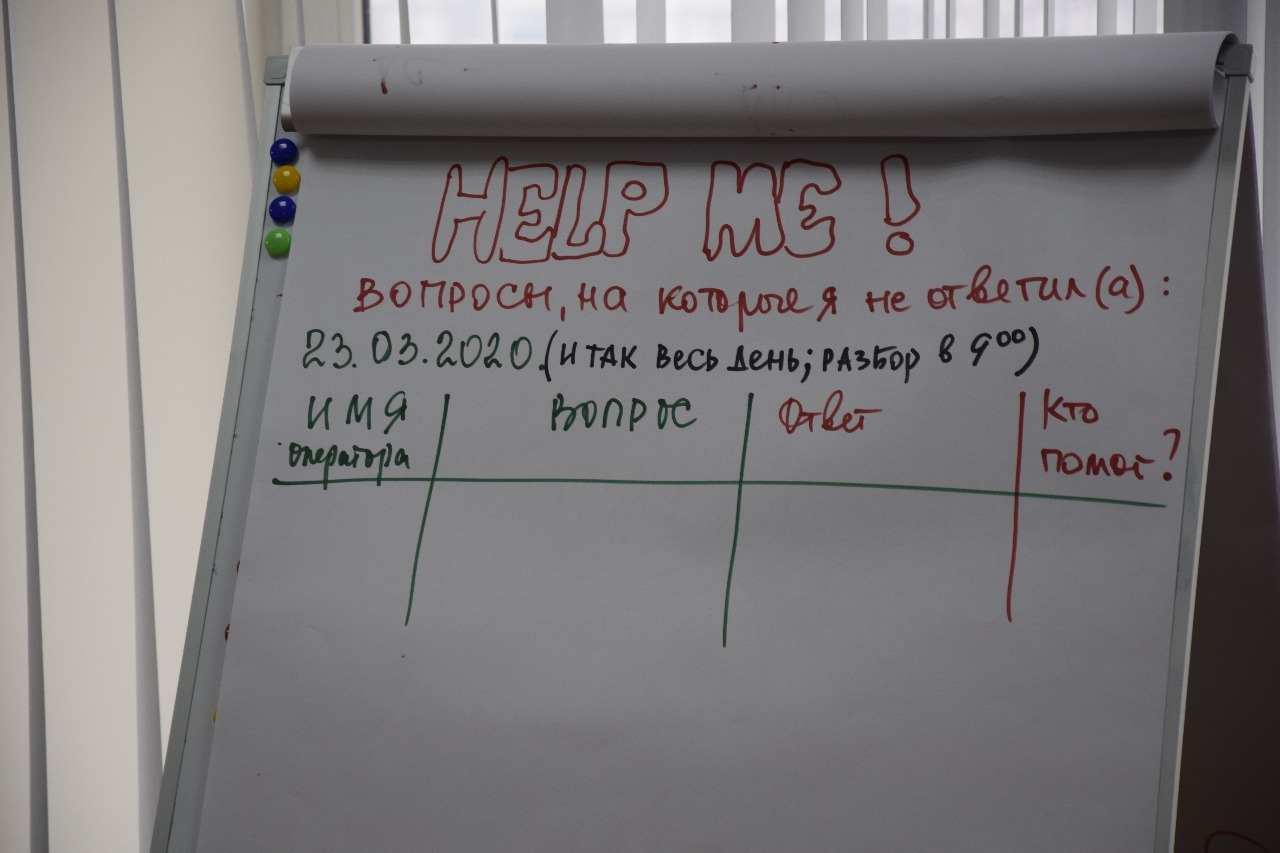 HELP ME!
ВОПРОСЫ, на которые я не ответил(а):
23.03.2020. (И ТАК ВЕСЬ ДЕНЬ; РАЗБОР в 9⁰⁰)
ИМЯ оператора ВОПРОС Ответ Кто помог?